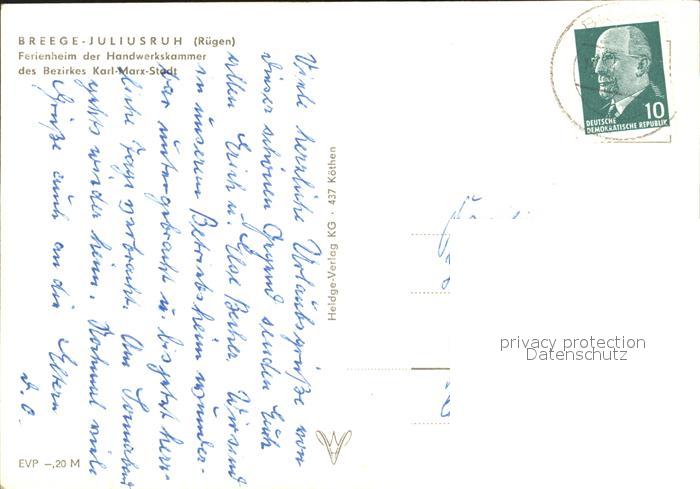 BREEGE-JULIUSRUH (Rügen)
Ferienheim der Handwerkskammer
des Bezirkes Karl-Marx-Stadt
Viele herzliche Urlaubsgrüße von
dieser schönen Gegend senden Euch
allen Erich u. Else Becher. Wir sind
in unserem Betriebsheim wunder-
bar untergebracht u. bis jetzt herr-
liche Tage verbracht. Am Sonnabend
gehts wieder heim. Nochmal viele
Grüße auch an die Eltern
d. O.
Heldge-Verlag KG · 437 Köthen
EVP –,20 M
10
DEUTSCHE
DEMOKRATISCHE REPUBLIK
privacy protection
Datenschutz